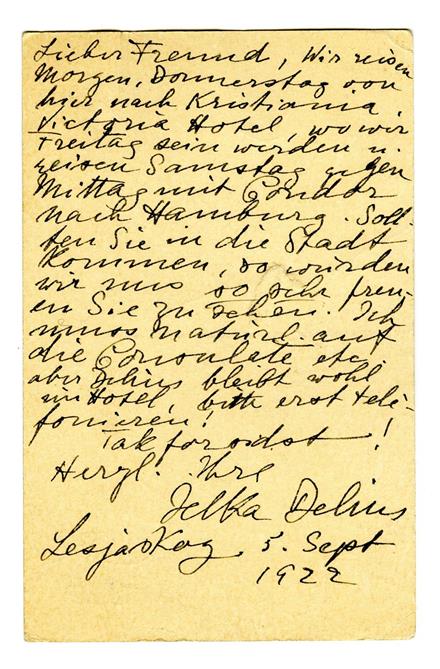 Lieber Freund, Wir reisen
Morgen, Donnerstag von
hier nach Kristiania,
Victoria Hotel, wo wir
Freitag sein werden u.
reisen Samstag gegen
Mittag mit Condor
nach Hamburg. Soll-
ten Sie in die Stadt
kommen, so würden
wir uns so sehr freu-
en Sie zu sehen! Ich
muss natürl. auf
die Consulate etc.
aber Delius bleibt wohl
im Hotel, bitte erst tele-
fonieren!
Tak for sidst!
Herzl. Ihre
Jelka Delius
Lesjaskog, 5. Sept
1922